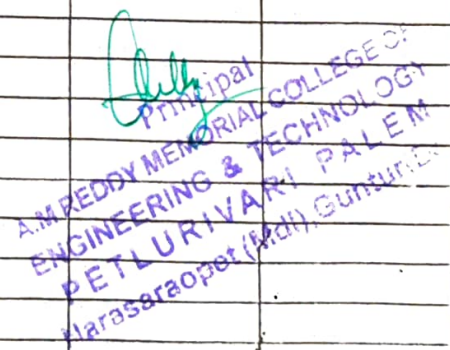 Principal
A.M.REDDY MEMORIAL COLLEGE OF
ENGINEERING & TECHNOLOGY
PETLURIVARI PALEM
Narasaraopet (Mdl), Guntur.